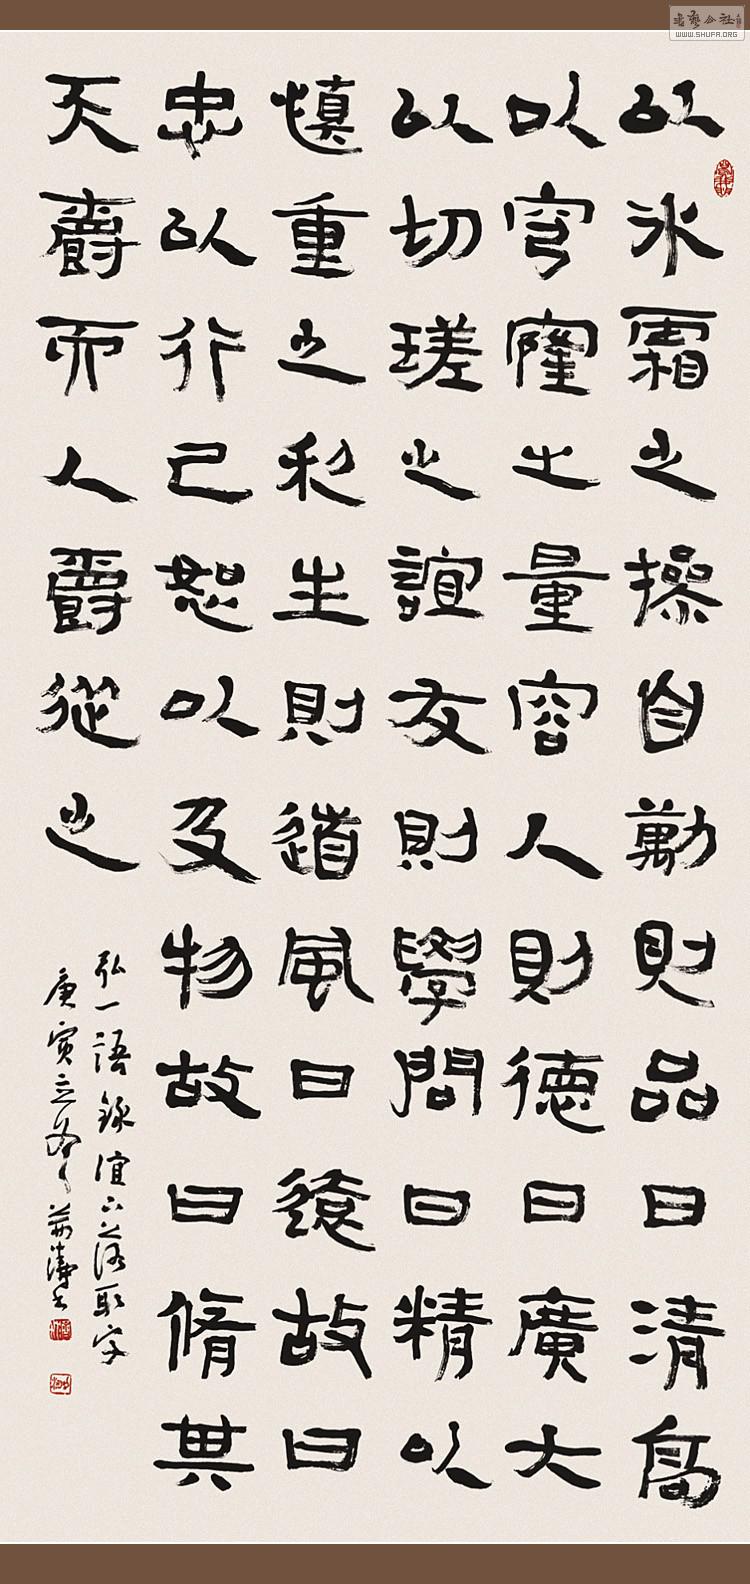 以冰霜之操自勵則品日清高
以穹窿之量容人則德日廣大
以切瑳之誼友則學問日精以
慎重之利生則道風日遠故曰
忠以行己恕以及物故曰脩其
天爵而人爵從之
弘一語錄誼下落取字
庚寅立春
WWW.SHUFA.ORG